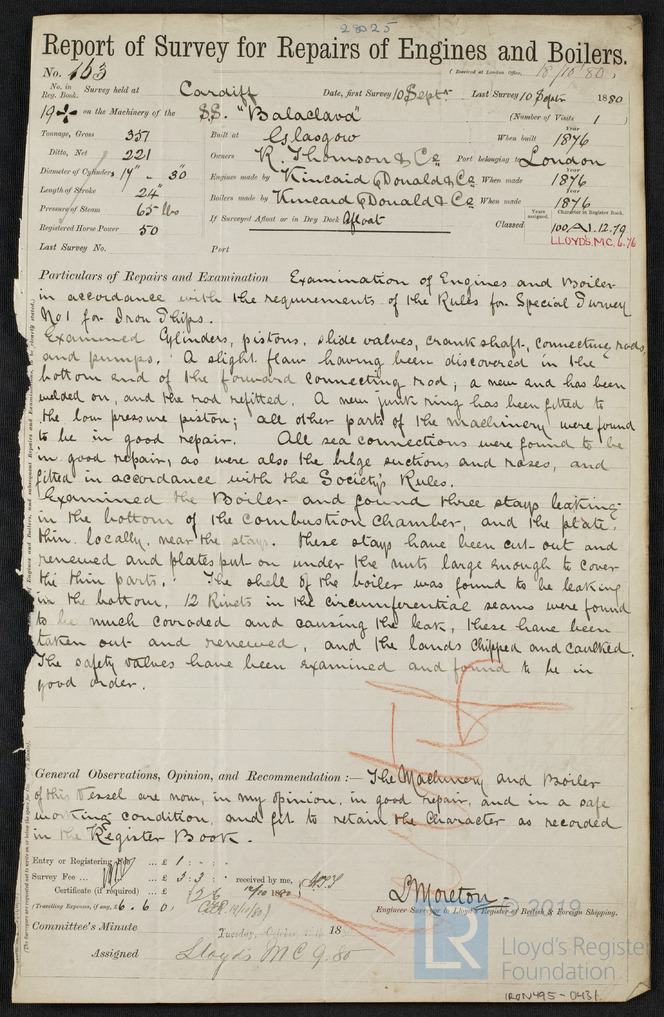 28025
Report of Survey for Repairs of Engines and Boilers.
No. 163 (Received at London Office, 18/10/80)
No. in Reg. Book. Survey held at Cardiff Date, first Survey 10 Septr Last Survey 10 Septr 1880
19 on the Machinery of the S.S. "Balaclava" (Number of Visits 1)
Tonnage, Gross 351 Built at Glasgow When built Year 1876
Ditto, Net 221 Owners R. Thomson & Co Port belonging to London
Diameter of Cylinders 17" - 30" Engines made by Kincaid & Donald & Co When made Year 1876
Length of Stroke 24" Boilers made by Kincaid & Donald & Co When made Year 1876
Pressure of Steam 65 lbs If Surveyed Afloat or in Dry Dock Afloat
Registered Horse Power 50 Classed Years assigned. Character in Register Book. 100 A1. 12.79
LLOYD'S.M.C. 6.76
Last Survey No. Port
Particulars of Repairs and Examination Examination of Engines and Boiler
in accordance with the requirements of the Rules for Special Survey
No 1 for Iron Ships.
Examined Cylinders, pistons, slide valves, crank shaft, connecting rods
and pumps. A slight flaw having been discovered in the
bottom end of the forward connecting rod; a new end has been
welded on, and the rod refitted. A new junk ring has been fitted to
the low pressure piston; all other parts of the machinery were found
to be in good repair. All sea connections were found to be
in good repair, as were also the bilge suctions and roses, and
fitted in accordance with the Society's Rules.
Examined the Boiler and found three stays leaking
in the bottom of the combustion chamber, and the plate
thin locally, near the stays. These stays have been cut out and
renewed and plates put on under the nuts large enough to cover
the thin parts. The shell of the boiler was found to be leaking
in the bottom, 12 Rivets in the circumferential seams were found
to be much corroded and causing the leak, these have been
taken out and renewed, and the lands chipped and caulked.
The safety valves have been examined and found to be in
good order.
General Observations, Opinion, and Recommendation :— The Machinery and Boiler
of this Vessel are now, in my opinion, in good repair, and in a safe
working condition, and fit to retain the Character as recorded
in the Register Book.
Entry or Registering Fee ... £ 1 : - : -
Survey Fee ... ... £ 3 : 3 : - received by me,
Certificate (if required) ... £ 2 6 12/10 1880
(Travelling Expenses, if any, £ 6 . 6 0) 
L Moreton
Engineer Surveyor to Lloyd's Register of British & Foreign Shipping.
Committee's Minute Tuesday, October 18
Assigned Lloyd's MC 9.80
© 2019
LR
Lloyd's Register
Foundation
IRON495-0431